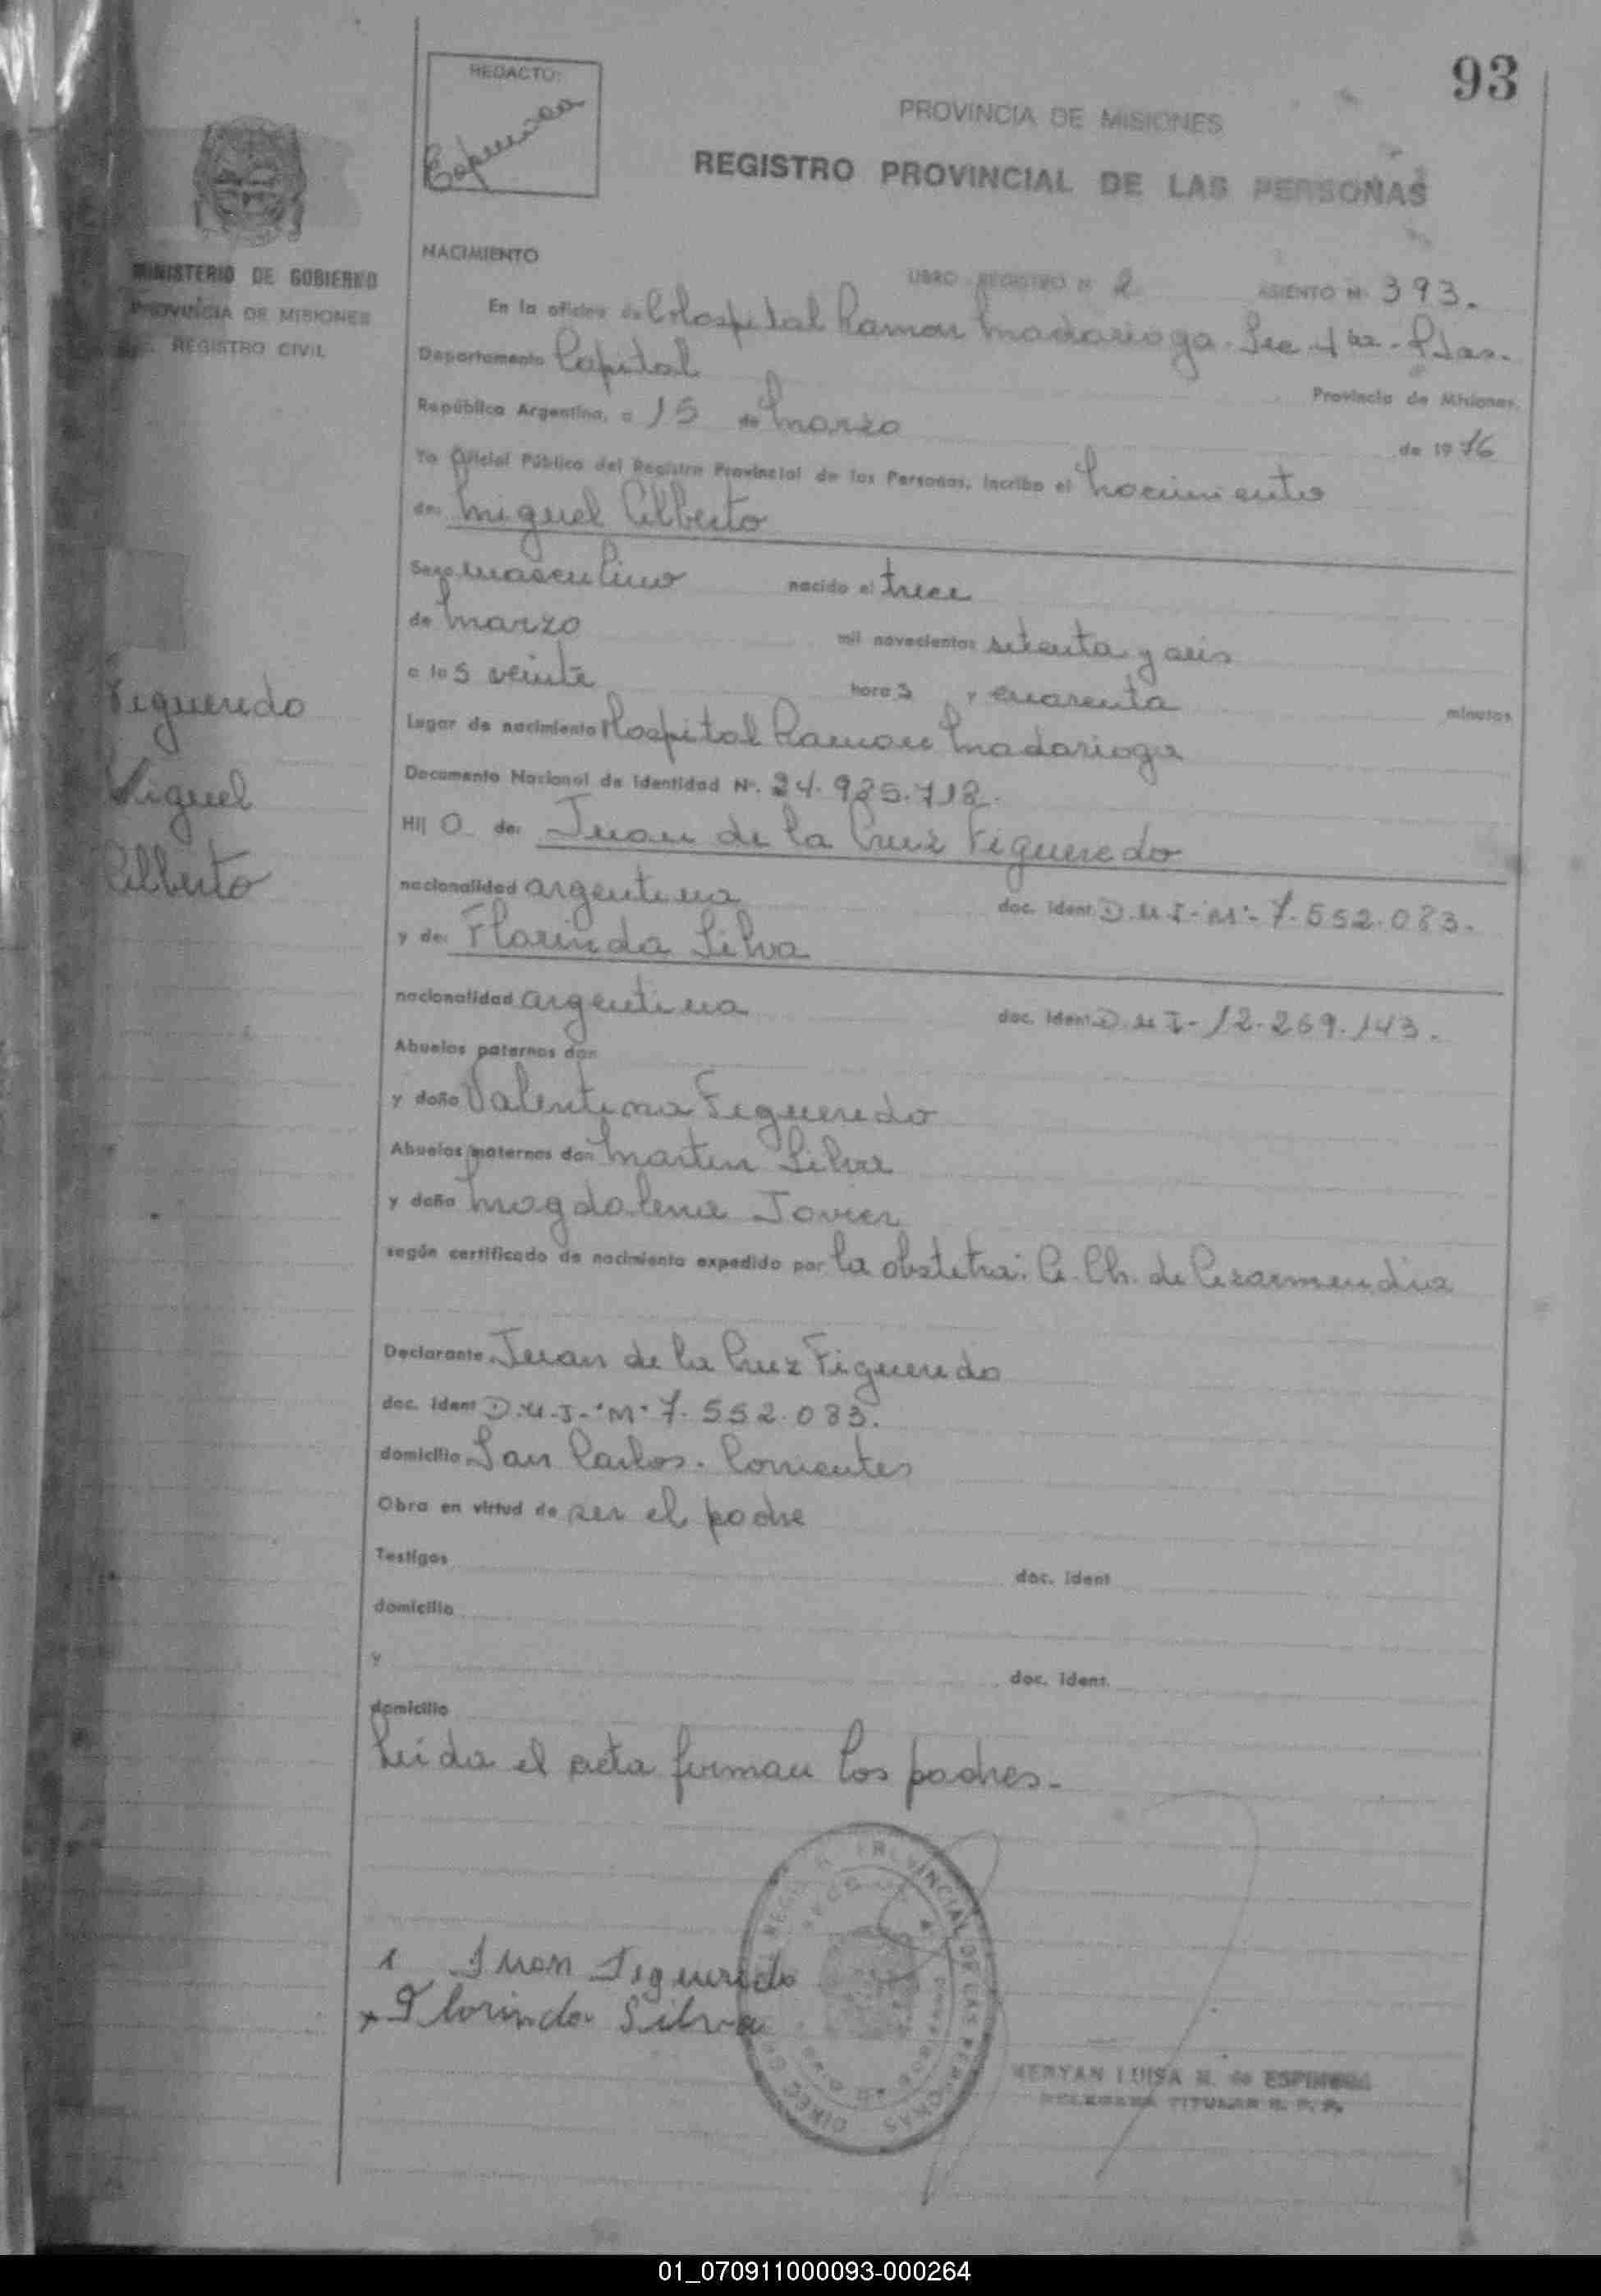 93
REDACTO:
Espinosa
PROVINCIA DE MISIONES
REGISTRO PROVINCIAL DE LAS PERSONAS
MINISTERIO DE GOBIERNO
PROVINCIA DE MISIONES
REGISTRO CIVIL
NACIMIENTO
LIBRO REGISTRO Nº 2 ASIENTO Nº 393.
En la oficina del Hospital Ramon Madariaga. Sec 4ta - Pdas.
Departamento Capital Provincia de Misiones,
República Argentina, a 15 de Marzo de 1976
Yo Oficial Público del Registro Provincial de las Personas, inscribo el Nacimiento
de: Miguel Alberto
Sexo masculino nacido el trece
de Marzo mil novecientos setenta y seis
a las veinte horas y cuarenta minutos
Lugar de nacimiento Hospital Ramon Madariaga
Documento Nacional de Identidad Nº. 24.925.712.
Hijo de: Juan de la Cruz Figueredo
nacionalidad argentina doc. ident. D.N.I-M-7.552.083.
y de: Florinda Silva
nacionalidad argentina doc. ident. D.N.I-12.269.143.
Abuelos paternos don
y doña Valentina Figueredo
Abuelos maternos don Martin Silva
y doña Magdalena Javier
según certificado de nacimiento expedido por la obstetra: C. Ch. de
Declarante Juan de la Cruz Figueredo
doc. ident D.N.I-"M" 7.552.083.
domicilio San Carlos. Corrientes
Obra en virtud de ser el padre
Testigos doc. ident
domicilio
y doc. ident.
domicilio
Leida el acta firman los padres.-
Figueredo
Miguel
Alberto
Juan Figueredo
x Florinda Silva
LUISA N. de ESPINOSA
DELEGADA TITULAR R. P. P.
01_070911000093-000264